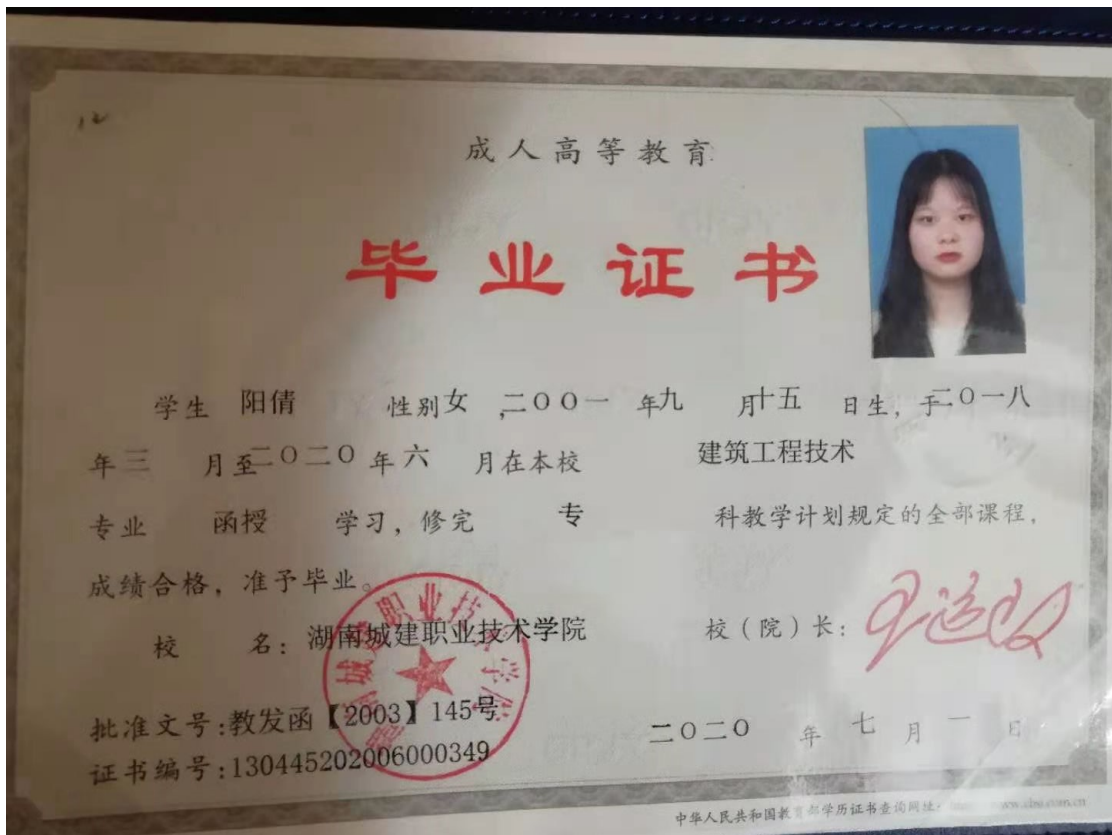 成人高等教育
毕业证书
学生 阳倩 性别 女 ,二〇〇一 年 九 月 十五 日生，于 二〇一八
年 三 月至 二〇二〇 年 六 月在本校 建筑工程技术
专业 函授 学习，修完 专 科教学计划规定的全部课程，
成绩合格，准予毕业。
校 名：湖南城建职业技术学院 校（院）长：
批准文号:教发函【2003】145号
二〇二〇 年 七 月 一 日
证书编号:130445202006000349
中华人民共和国教育部学历证书查询网址：